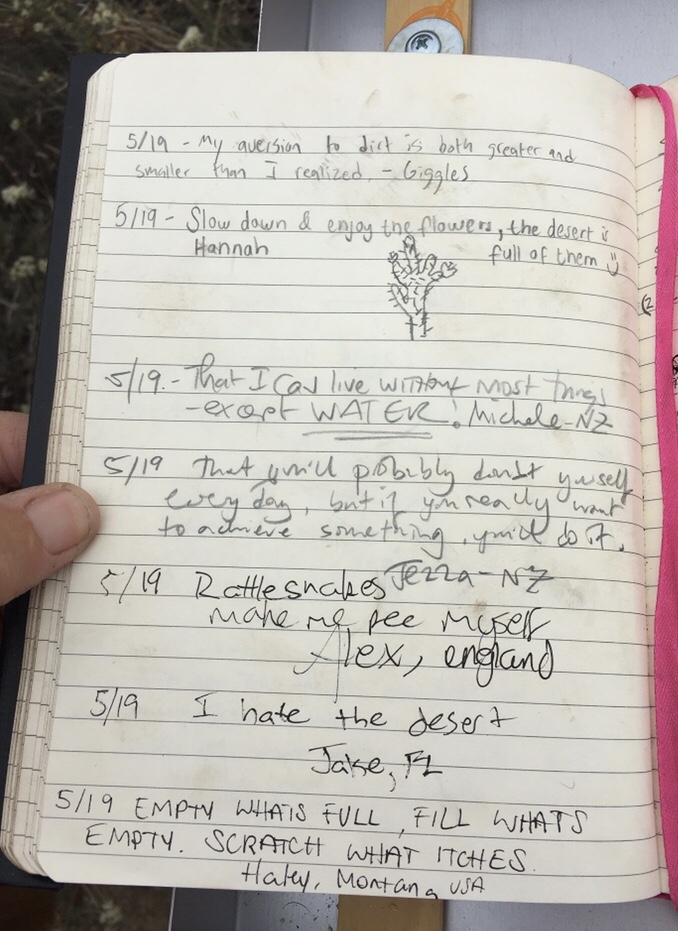 5/19 - My aversion to dirt is both greater and
smaller than I realized. - Giggles
5/19 - Slow down & enjoy the flowers, the desert is
Hannah full of them
5/19. - That I can live without most things
- except WATER! Michele - NZ
5/19 That you'll probably doubt yourself
every day, but if you really want
to achieve something, you'll do it.
Jezza - NZ
5/19 Rattlesnakes
make me pee myself
Alex, england
5/19 I hate the desert
Jake, FL
5/19 EMPTY WHATS FULL, FILL WHATS
EMPTY. SCRATCH WHAT ITCHES.
Haley, Montana USA